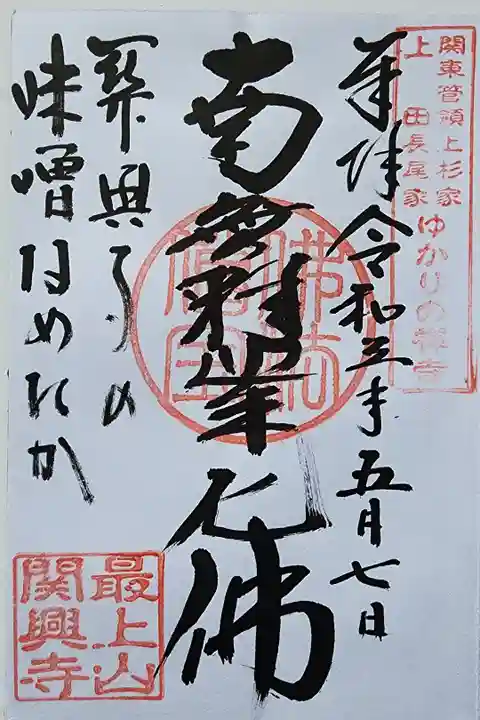 関東管領上杉家
上田長尾家 ゆかりの禅寺
奉拝 令和三年五月七日
南無釈迦牟尼佛
佛法僧宝
関興寺の
味噌なめたか
最上山
関興寺